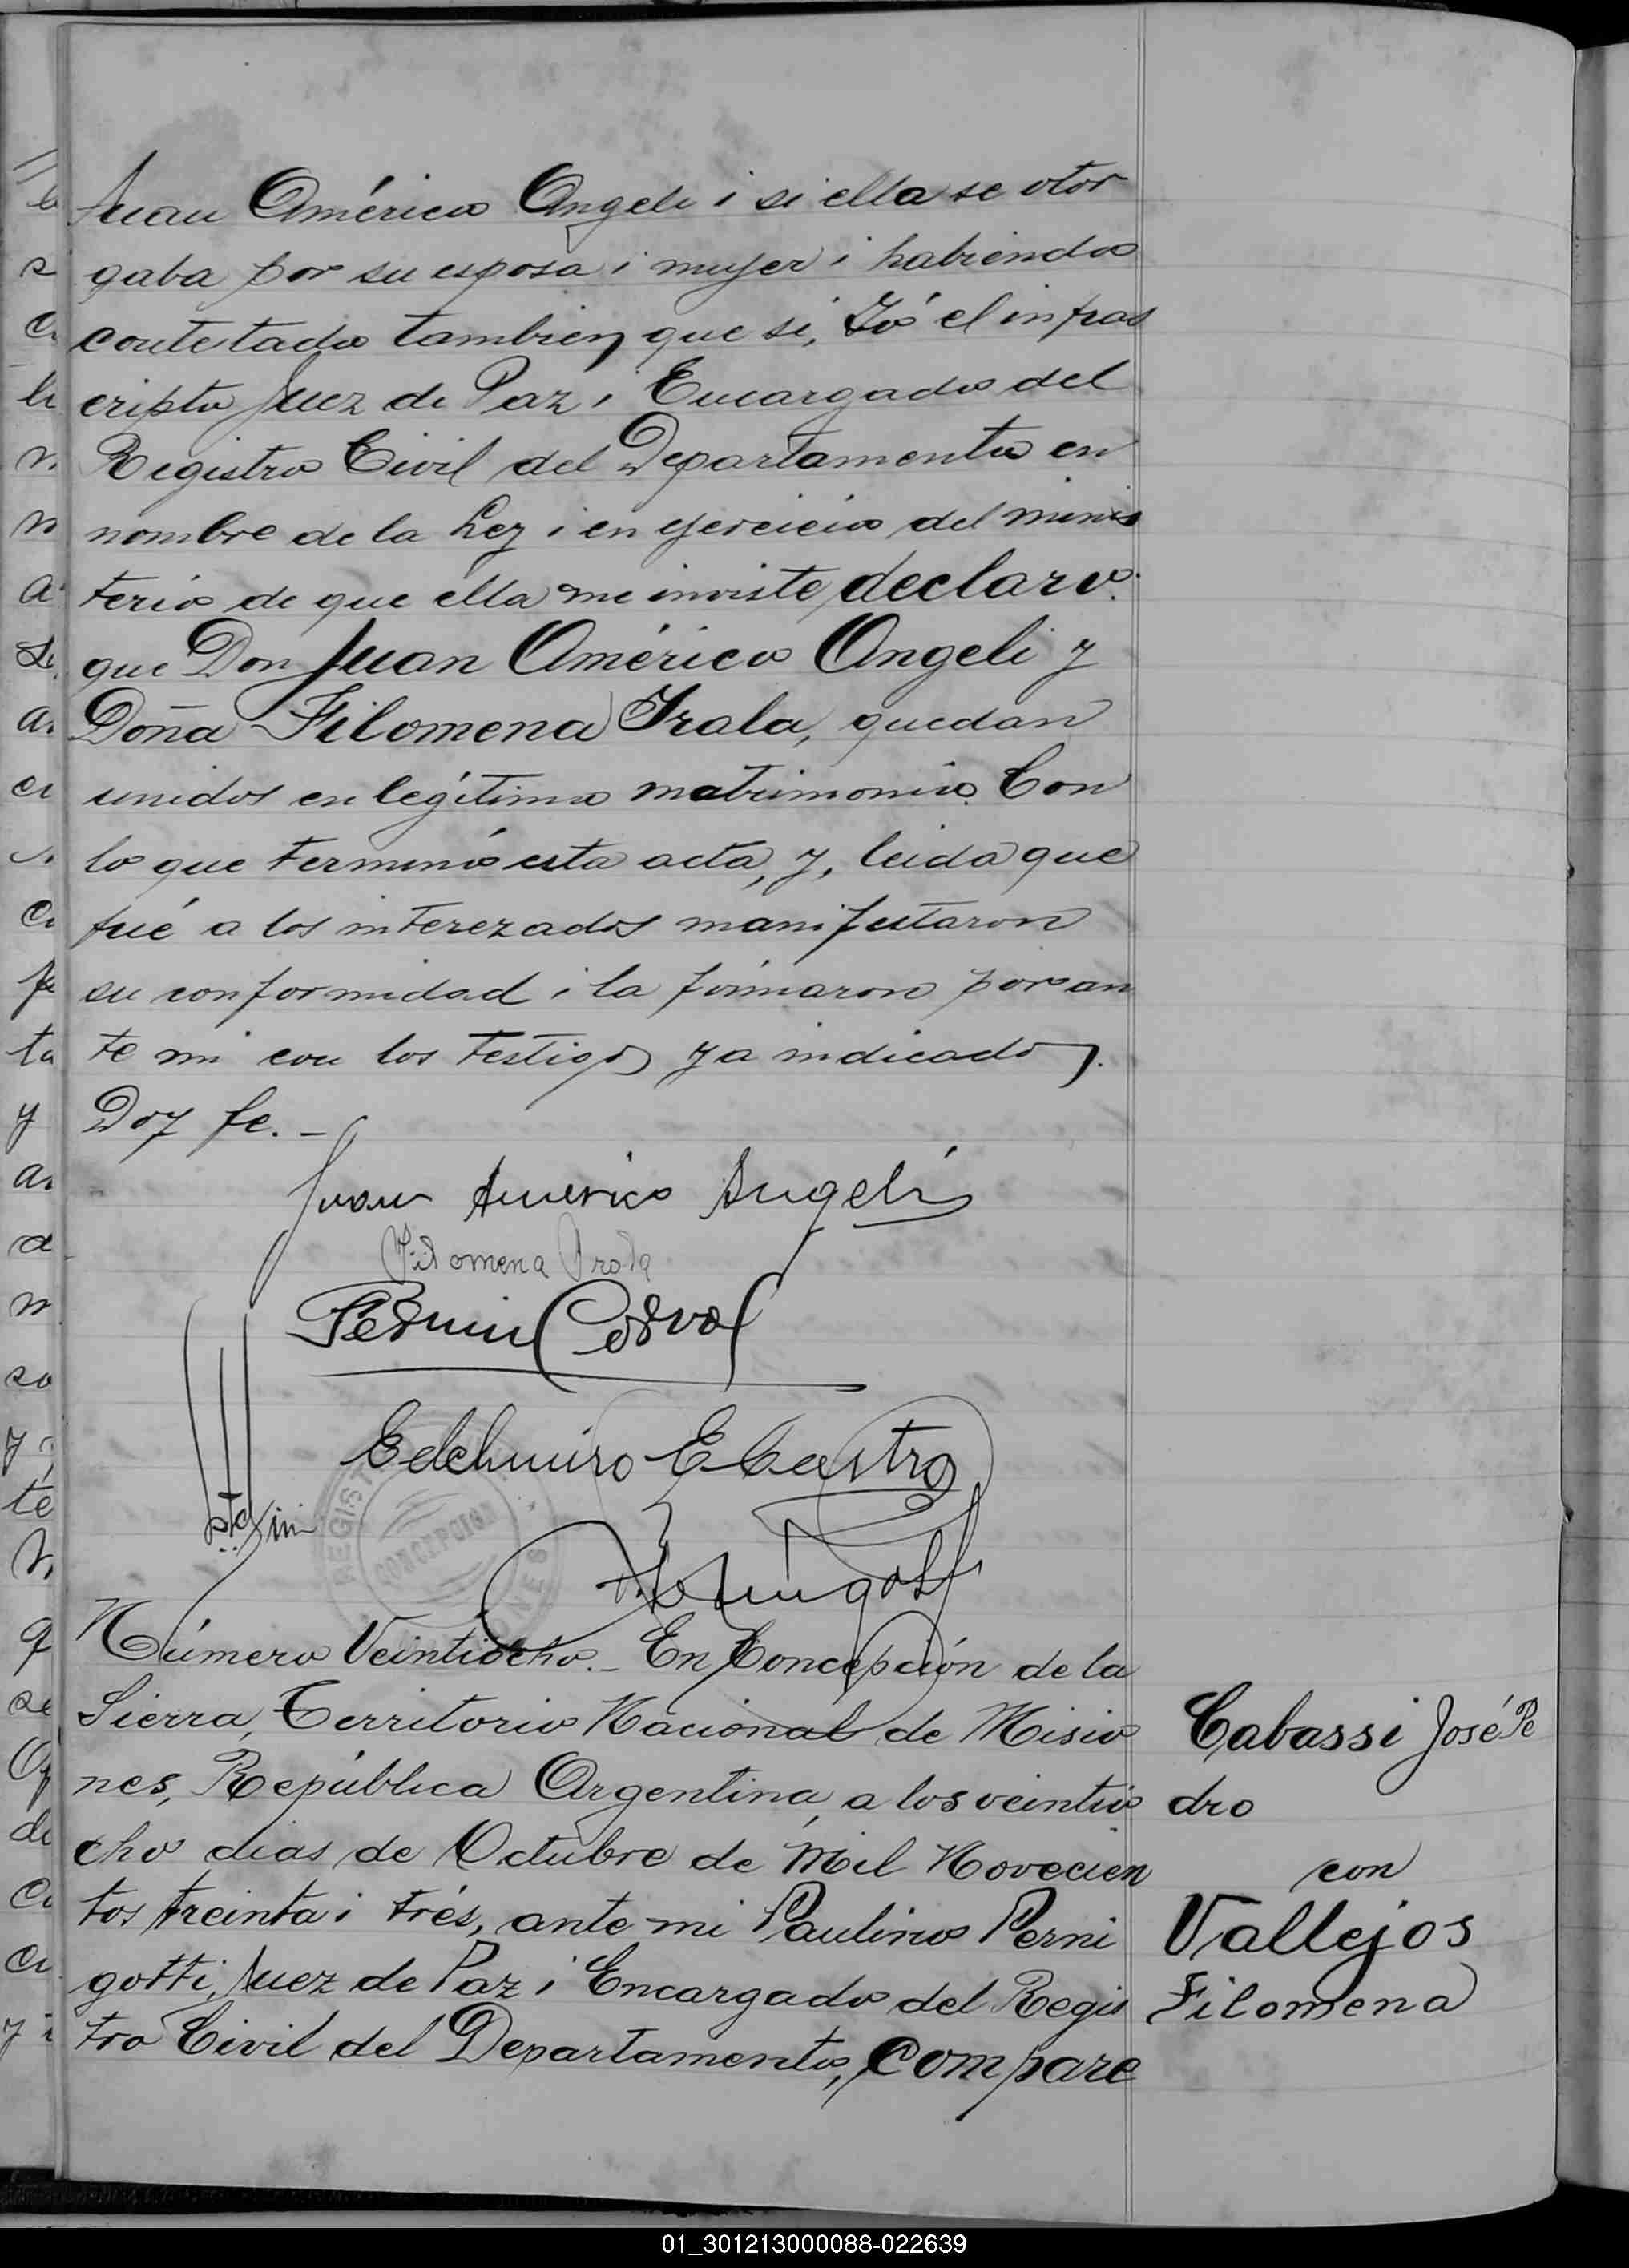 Juan Américo Angeli i si ella se otor
gaba por su esposa i mujer i habiendo
contetado tambien que si, Yó el infras
cripto Juez de Paz i Encargado del
Registro Civil del Departamento en
nombre de la Ley i en ejercicio del minis
terio de que ella me inviste, declaro:
que Don Juan Américo Angeli y
Doña Filomena Irala, quedan
unidos en legítimo matrimonio. Con
lo que terminó esta acta, y, leida que
fué a los interezados manifestaron
su conformidad i la firmaron por an
te mi con los testigos ya indicados.
Doy fe. -
Juan Americo Angeli
Filomena Irala
Fermin
Edelmiro E Castro
REGIST
CONCEPCION
Número Veintiocho. - En Concepción de la
Sierra, Territorio Nacional de Misio
nes, República Argentina, a los veintio
cho dias de Octubre de Mil Novecien
tos treinta i trés, ante mi Paulino Perni
gotti, Juez de Paz i Encargado del Regis
tro Civil del Departamento, compare
Cabassi José Pe
dro
con
Vallejos
Filomena
01_301213000088-022639